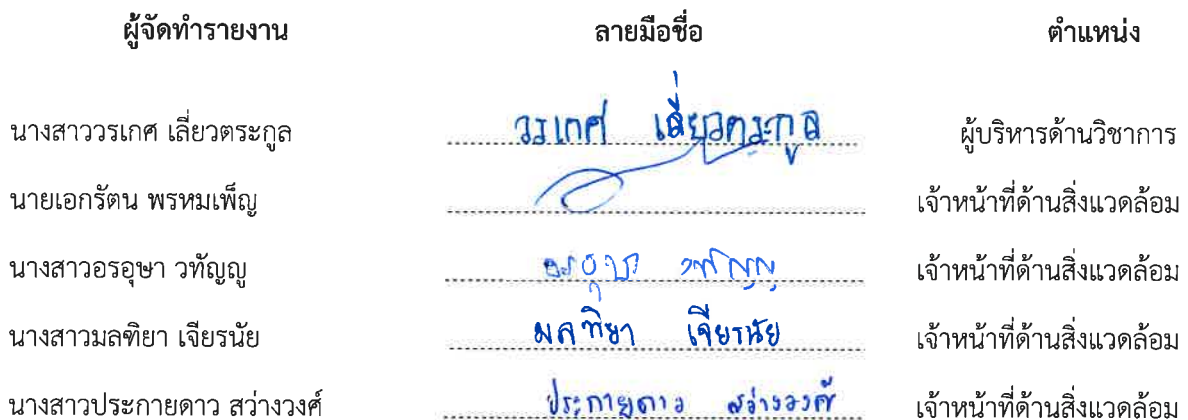 ผู้จัดทำรายงาน ลายมือชื่อ ตำแหน่ง
นางสาววรเกศ เลี่ยวตระกูล วรเกศ เลี่ยวตระกูล ผู้บริหารด้านวิชาการ
นายเอกรัตน พรหมเพ็ญ เจ้าหน้าที่ด้านสิ่งแวดล้อม
นางสาวอรอุษา วทัญญู อรอุษา วทัญญู เจ้าหน้าที่ด้านสิ่งแวดล้อม
นางสาวมลฑิยา เจียรนัย มลฑิยา เจียรนัย เจ้าหน้าที่ด้านสิ่งแวดล้อม
นางสาวประกายดาว สว่างวงศ์ ประกายดาว สว่างวงศ์ เจ้าหน้าที่ด้านสิ่งแวดล้อม